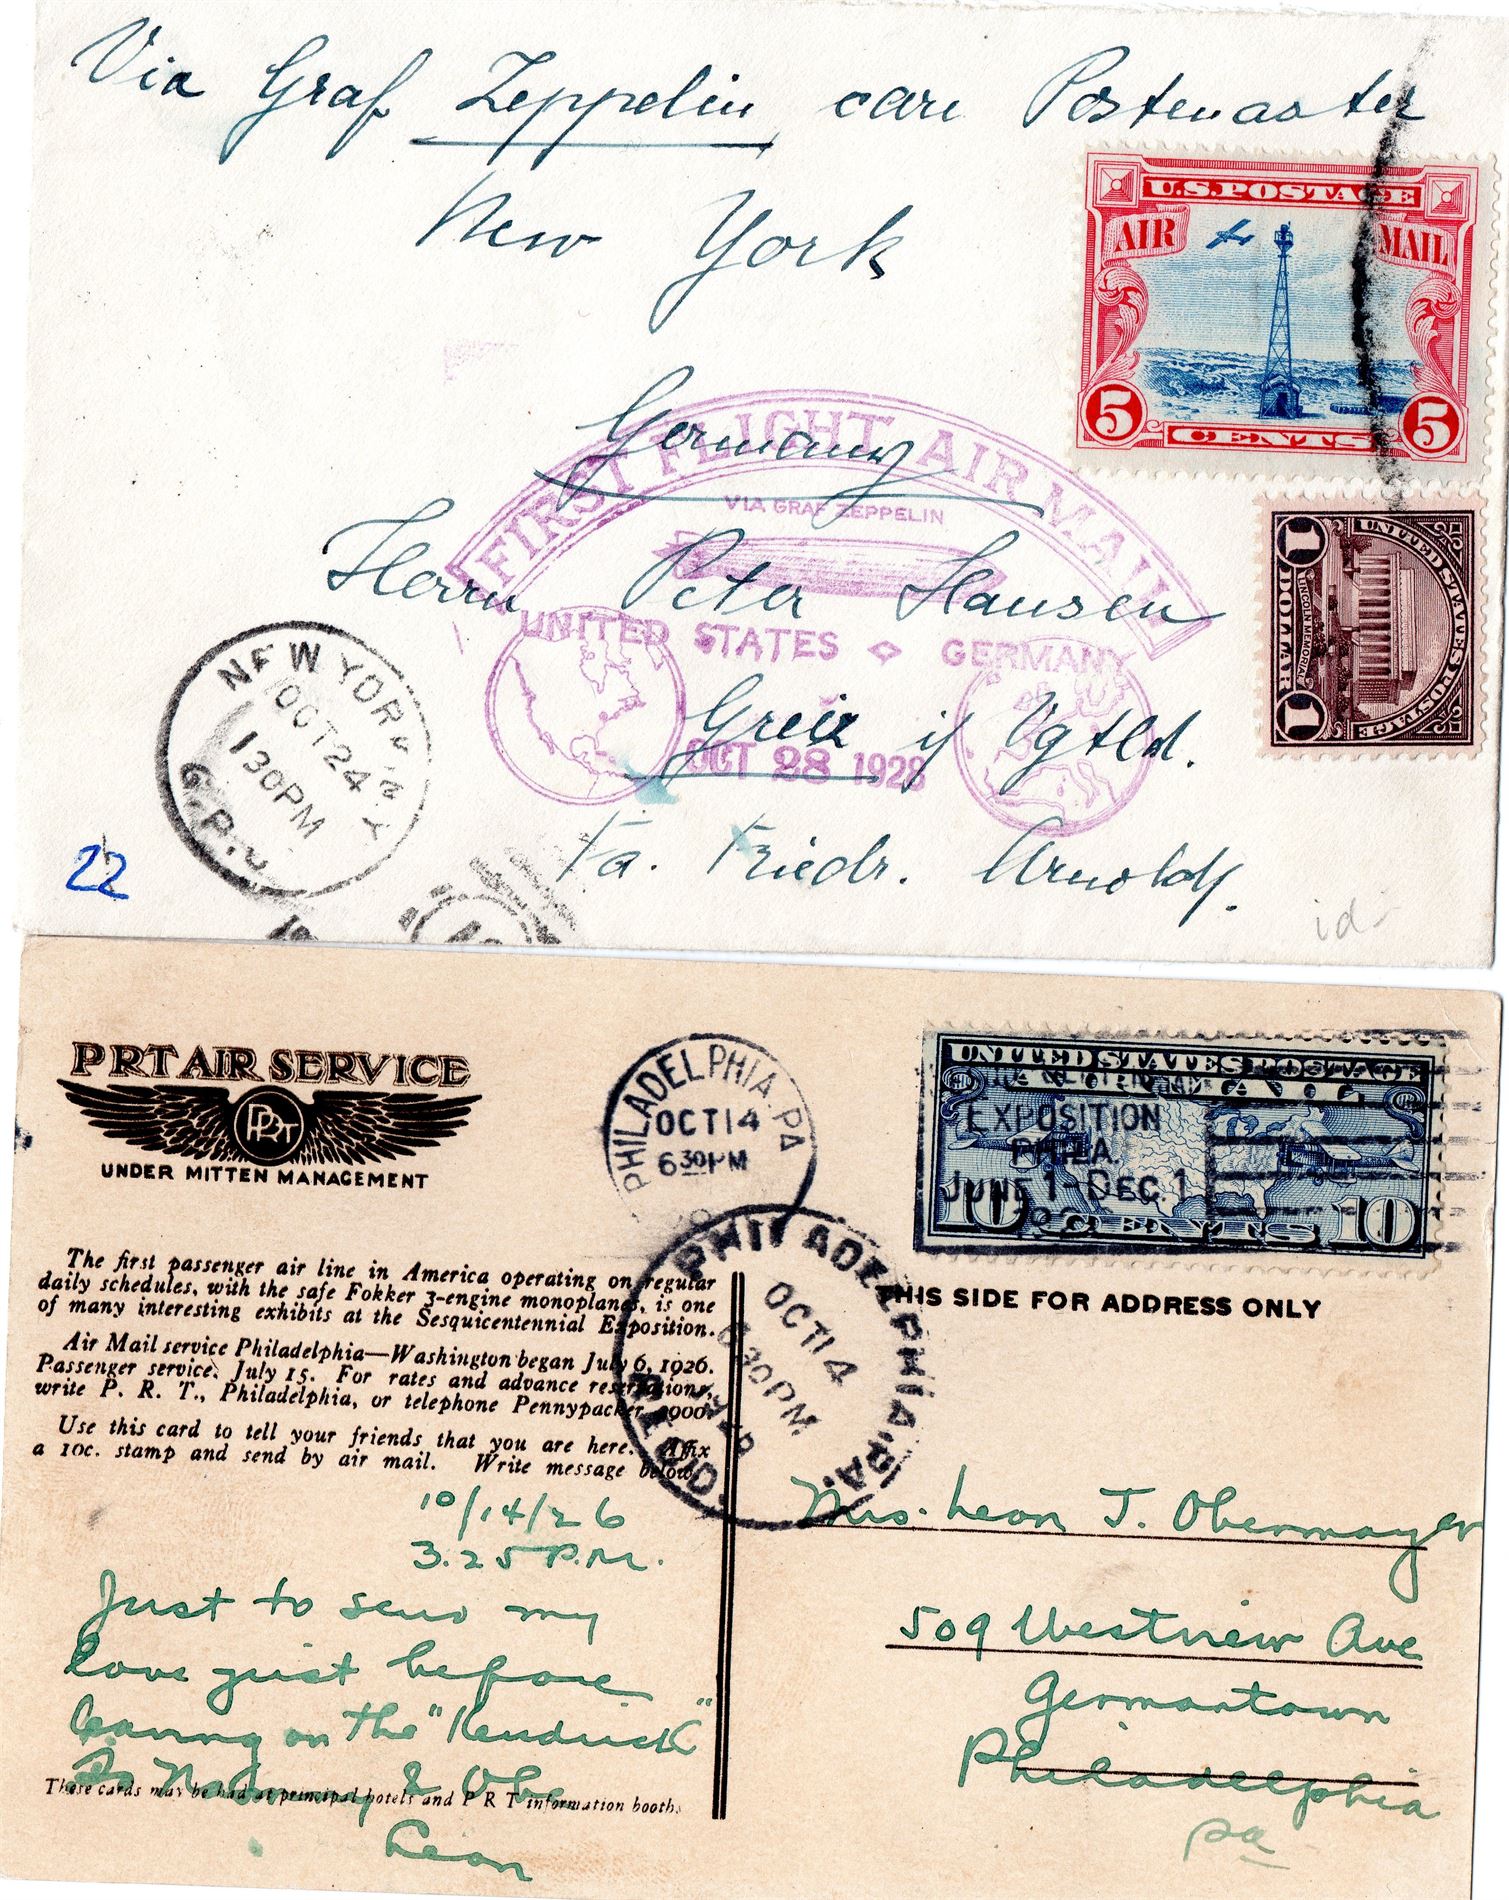 Via Graf Zeppelin care Postmaster
New York
U.S. POSTAGE
AIR MAIL
5 CENTS 5
Germany
FIRST FLIGHT AIR MAIL
VIA GRAF ZEPPELIN
Herrn Peter Hansen
UNITED STATES GERMANY
UNITED STATES POSTAGE
LINCOLN MEMORIAL
1 DOLLAR 1
Greiz i/ Vgtld.
OCT 28 1928
NEW YORK, N.Y.
OCT 24
130 PM
G.P.O
Fa. Friedr. Arnoldy.
22
id-
PRT AIR SERVICE
PRT
UNDER MITTEN MANAGEMENT
PHILADELPHIA, PA
OCT 14
6 30 PM
UNITED STATES POSTAGE
EXPOSITION
PHILA.
JUNE 1-DEC. 1
10 CENTS 10
PHILADELPHIA, PA.
OCT 14
630 PM
The first passenger air line in America operating on regular
daily schedules, with the safe Fokker 3-engine monoplanes, is one
of many interesting exhibits at the Sesquicentennial Exposition.
Air Mail service Philadelphia—Washington began July 6, 1926.
Passenger service, July 15. For rates and advance reservations,
write P. R. T., Philadelphia, or telephone Pennypacker 9000.
Use this card to tell your friends that you are here. Affix
a 10c. stamp and send by air mail. Write message below.
THIS SIDE FOR ADDRESS ONLY
10/14/26
3.25 P.M.
Just to send my
love just before
leaving on the "Kendrick"
Leon
These cards may be had at principal hotels and P R T information booths
Mrs. Leon J. Obermayer
509 Westview Ave
Germantown
Philadelphia
Pa